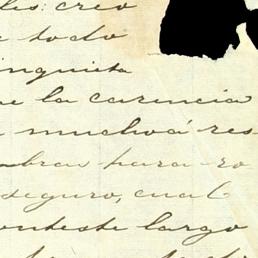 les: creo
e todo
inquieta
ue la carencia
a mucho á res
mbras para ro
seguro, cual
onteste largo